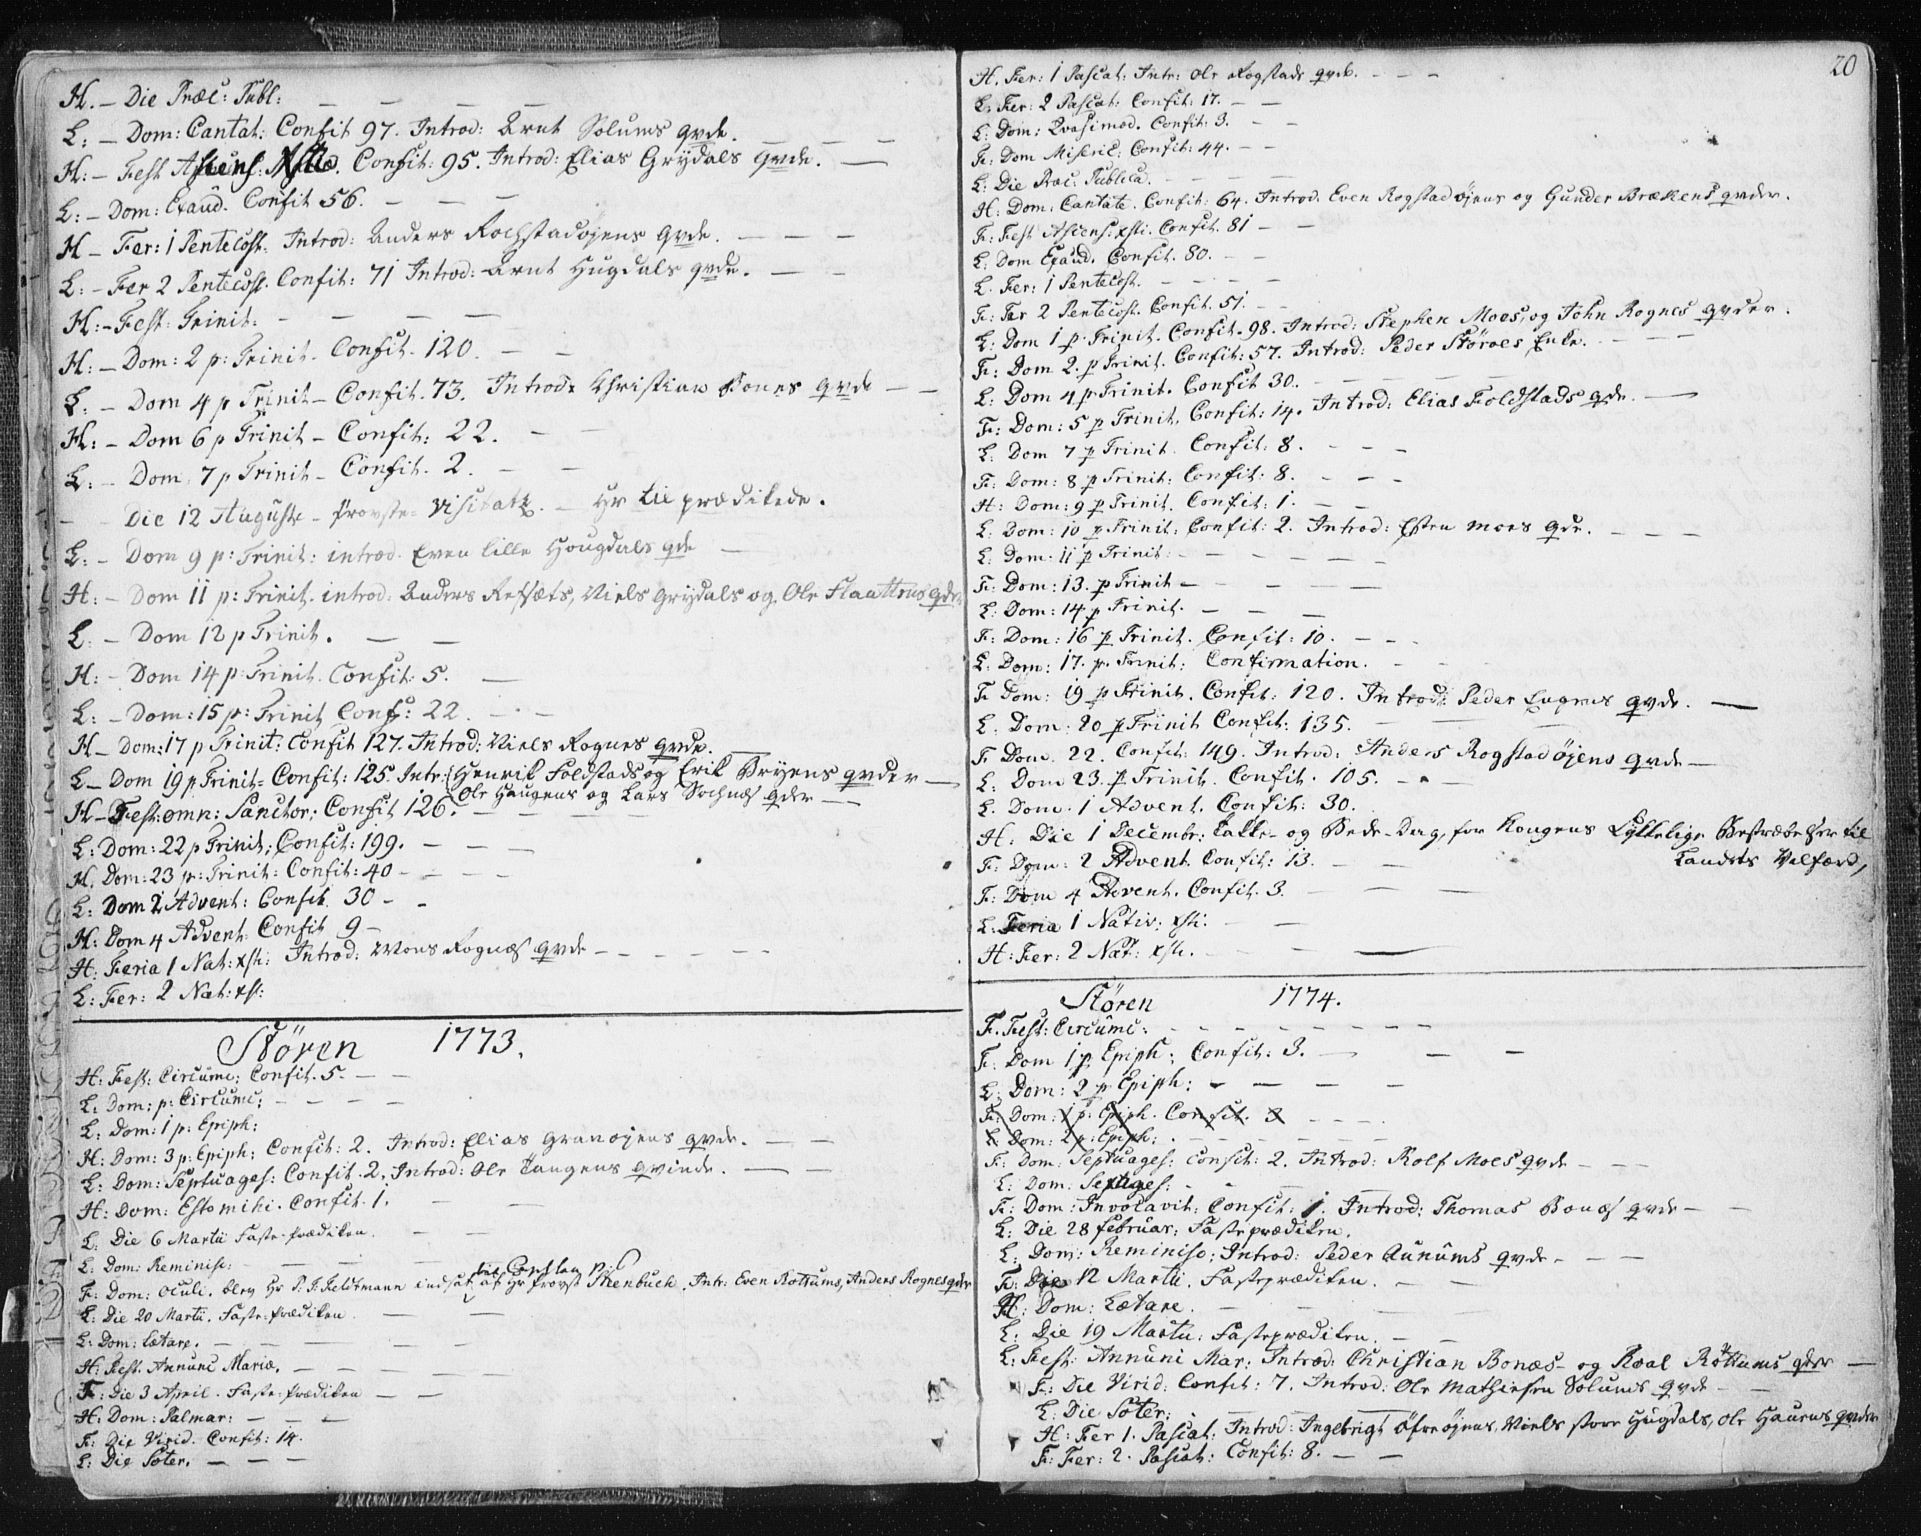 H. – Die Præc: Publ: – – – –
L: – Dom: Cantat: Confit 97. Introd: Arnt Solums qvde. – – –
H: – Fest Ascens: Xsti. Confit: 95. Introd: Elias Grydals qvde. –
L: – Dom: Exaud. Confit 56. – – –
H – Fer: 1 Pentecost. Introd: Anders Rochstadøjens qvde. – – –
L: – Fer 2 Pentecost. Confit: 71 Introd: Arnt Hugdals qvde. – –
H: – Fest: Trinit: – – – –
H: – Dom: 2 p: Trinit. Confit. 120. – –
L: – Dom 4 p Trinit – Confit. 73. Introd: Christian Bones qvde – –
H: – Dom 6 p Trinit – Confit: 22. – –
L: – Dom: 7 p Trinit – Confit. 2. – –
– Die 12 Auguste – Provste- Visitatz. – Hr Lie prædikede.
L: – Dom 9 p: Trinit: introd. Even lille Hougdals qde –
H: – Dom 11 p: Trinit. introd: Anders Refsæts, Niels Grydals og Ole Flaattens qder
L: – Dom 12 p Trinit. – –
H: – Dom 14 p: Trinit. Confit: 5. –
L: – Dom: 15 p: Trinit Conf: 22. – –
H – Dom: 17 p Trinit: Confit 127. Introd: Niels Rognes qvde.
L – Dom 19 p Trinit – Confit: 125. Intr: Henrik Foldstads og Erik Bryens qvder –
Ole Haugens og Lars Sochnæs qder –
H – Fest: omn: Sanctor: Confit 126. – – –
L: Dom: 22 p Trinit: Confit: 199. – – –
H. Dom: 23 p: Trinit: Confit: 40 – – – –
L: Dom 2 Advent: Confit 30 – –
H: Dom 4 Advent Confit 9 –
H: Feria 1 Nat: xsti: Introd: Mons Rognæs qvde – – – – –
L: Fer: 2 Nat: xst:
Stören 1773.
H: Fest: Circumc: Confit. 5. – –
L: Dom: p: Circumc: – – – –
L: Dom: 1 p: Epiph:
H: Dom: 3 p: Epiph: Confit: 2. Introd: Elias Granøjens qvde. – –
L: Dom: Septuages: Confit. 2. Introd: Ole Tangens qvinde. – –
H: Dom: Estomihi. Confit. 1. – –
L: Die 6 Martii Faste-prædiken. – –
L: Dom: Reminisc: – – – –
F: Dom: Oculi. blev Hr P. J. Feldtmann indsat, af Hr Provst Stenbuch. Intr: Even Rottums, Anders Rognes qder
L: Die 20 Martii. Faste-prædiken – – –
L: Dom: Lætare. – – – –
H: Fest: Annunc Mariæ. – – – –
F: Die 3 April. Faste-prædiken – –
H: Dom: Palmar: – – –
F: Die Virid. Confit: 14.
L: Die Soter. – – –
20
H. Fer: 1 Pascat: Intr: Ole Rogstads qvde. – – –
L: Fer: 2 Pascat: Confit: 17. – –
L: Dom: Qvasimod. Confit: 3. – –
F: Dom Miseric: Confit: 44. – –
L: Die Præc: Publica. – – – –
H: Dom: Cantate. Confit: 64. Introd. Even Rogstadøjens og Gunder Brækens qvder.
F: Fest Ascens: xsti. Confit. 81 – –
L: Dom Exaud. Confit. 80. – –
L. Fer: 1 Pentecost. – – – –
F: Fer 2 Pentecost. Confit. 51. – –
L: Dom 1 p Trinit. Confit. 98. Introd: Stephen Moes, og John Rognes qvder.
F: Dom 2. p Trinit. Confit: 57. Introd: Peder Störoes Enke. – – –
L: Dom 4 p Trinit. Confit 30. – – – –
F: Dom: 5 p Trinit. Confit: 14. Introd: Elias Foldstads qde. –
L: Dom 7 p Trinit. Confit: 8. – – –
F: Dom: 8 p Trinit: Confit: 8. – – –
H: Dom: 9 p Trinit. Confit: 1. – –
L: Dom: 10 p Trinit: Confit: 2. Introd: Esten Moes qde. – – –
L: Dom: 11 p Trinit: – – – – –
F: Dom: 13. p Trinit – – – – –
L: Dom: 14 p Trinit. – – –
F: Dom: 16 p Trinit. Confit: 10. – – –
L: Dom: 17. p. Trinit: Confirmation. – –
F Dom: 19 p Trinit. Confit: 120. Introd: Peder Engnes qvde. –
L: Dom: 20 p Trinit Confit: 135. – – –
F Dom. 22. Confit: 149. Introd: Anders Rogstadøjens qvde –
L: Dom 23. p Trinit. Confit. 105. – –
L: Dom. 1 Advent. Confit: 30.
H: Die 1 Decembr: Takke- og Bede-Dag, for Kongens Lykkelige Bestræbelser til
Landets Velfærd,
F: Dom: 2 Advent. Confit: 13. – – –
F: Dom 4 Advent. Confit. 3. – – –
L: Feria 1 Nativ: xsti: – –
H: Fer: 2 Nat: xsti. – – – –
Stören 1774.
F. Fest: Circumc: – – – – – – – –
F: Dom 1 p Epiph: Confit: 3. – – –
L: Dom: 2 p Epiph: – – – –
F: Dom: 1 p: Epiph. Confit. 3 – – – –
L: Dom: 2 p: Epiph: – – – – – –
F: Dom: Septuages: Confit: 2. Introd: Rolf Moes qvde – – –
L: Dom: Sexages: – – – –
F: Dom: Invocavit: Confit: 1. Introd: Thomas Bonæs qvde – –
L: Die 28 Februar: Fasteprædiken.
L: Dom: Reminisc: Introd: Peder Aunums qvde – – –
F: Die 12 Martii. Fasteprædiken. – –
H: Dom: Lætare. – – – –
L: Die 19 Martii: Fasteprædiken. – –
L: Fest: Annunc Mar: Introd: Christian Bonæs – og Roal Röttums qder –
F: Die Virid: Confit: 7. Introd: Ole Mathiesen Solums qvde – –
L: Die Soter: – – – – –
H: Fer 1. Pascat: Introd: Ingebrigt Øfreøjens, Niels store Hugdals, Ole Haukens qvder
F: Fer: 2. Pascat: Confit: 8. – –